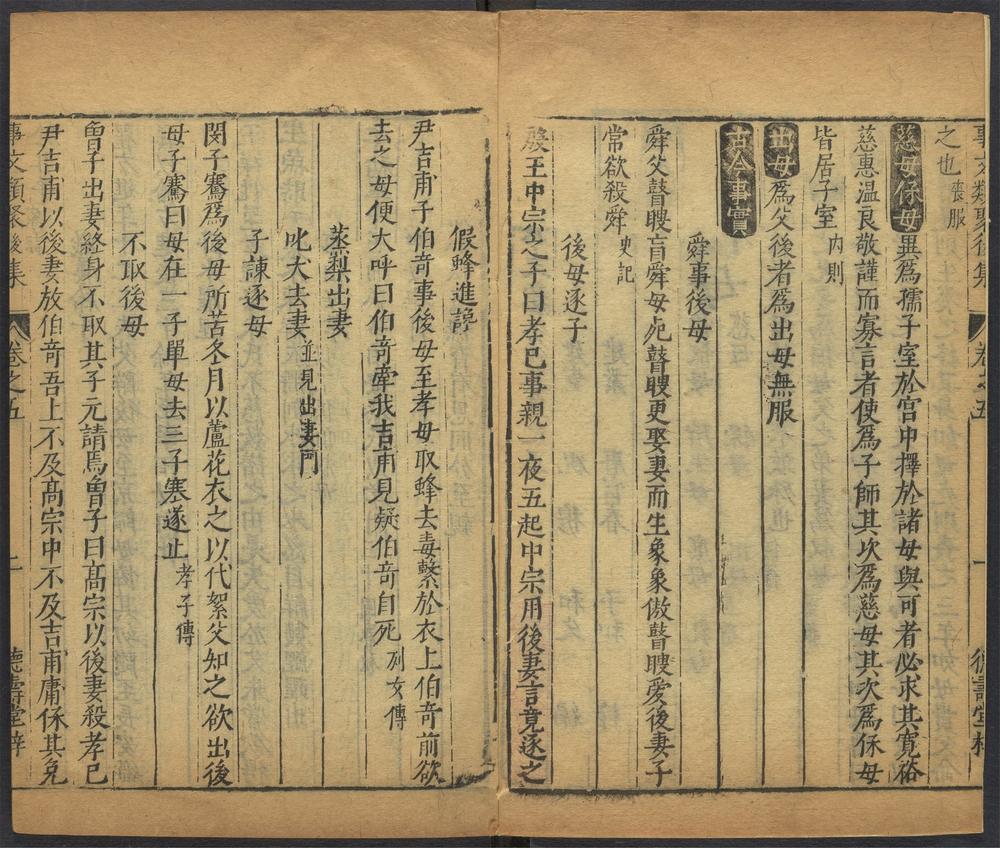 事文類聚後集 卷之五 一 德壽堂梓
之也 喪服
慈母保母 異爲孺子室於宮中擇於諸母與可者必求其寬裕
慈惠温良敬謹而寡言者使爲子師其次爲慈母其次爲保母
皆居子室 內則
出母 爲父後者爲出母無服
古今事實
舜事後母
舜父瞽瞍盲舜母死瞽瞍更娶妻而生象象傲瞽瞍愛後妻子
常欲殺舜 史記
後母逐子
殷王中宗之子曰孝已事親一夜五起中宗用後妻言竟逐之
假蜂進讒
尹吉甫子伯奇事後母至孝母取蜂去毒繫於衣上伯奇前欲
去之母便大呼曰伯奇牽我吉甫見疑伯奇自死 列女傳
蒸梨出妻
叱犬去妻 並見出妻門
子諫逐母
閔子騫爲後母所苦冬月以蘆花衣之以代絮父知之欲出後
母子騫曰母在一子單母去三子寒遂止 孝子傳
不取後母
曾子出妻終身不取其子元請焉曾子曰高宗以後妻殺孝已
尹吉甫以後妻放伯奇吾上不及高宗中不及吉甫庸保其免
事文類聚後集 卷之五 二 德壽堂梓